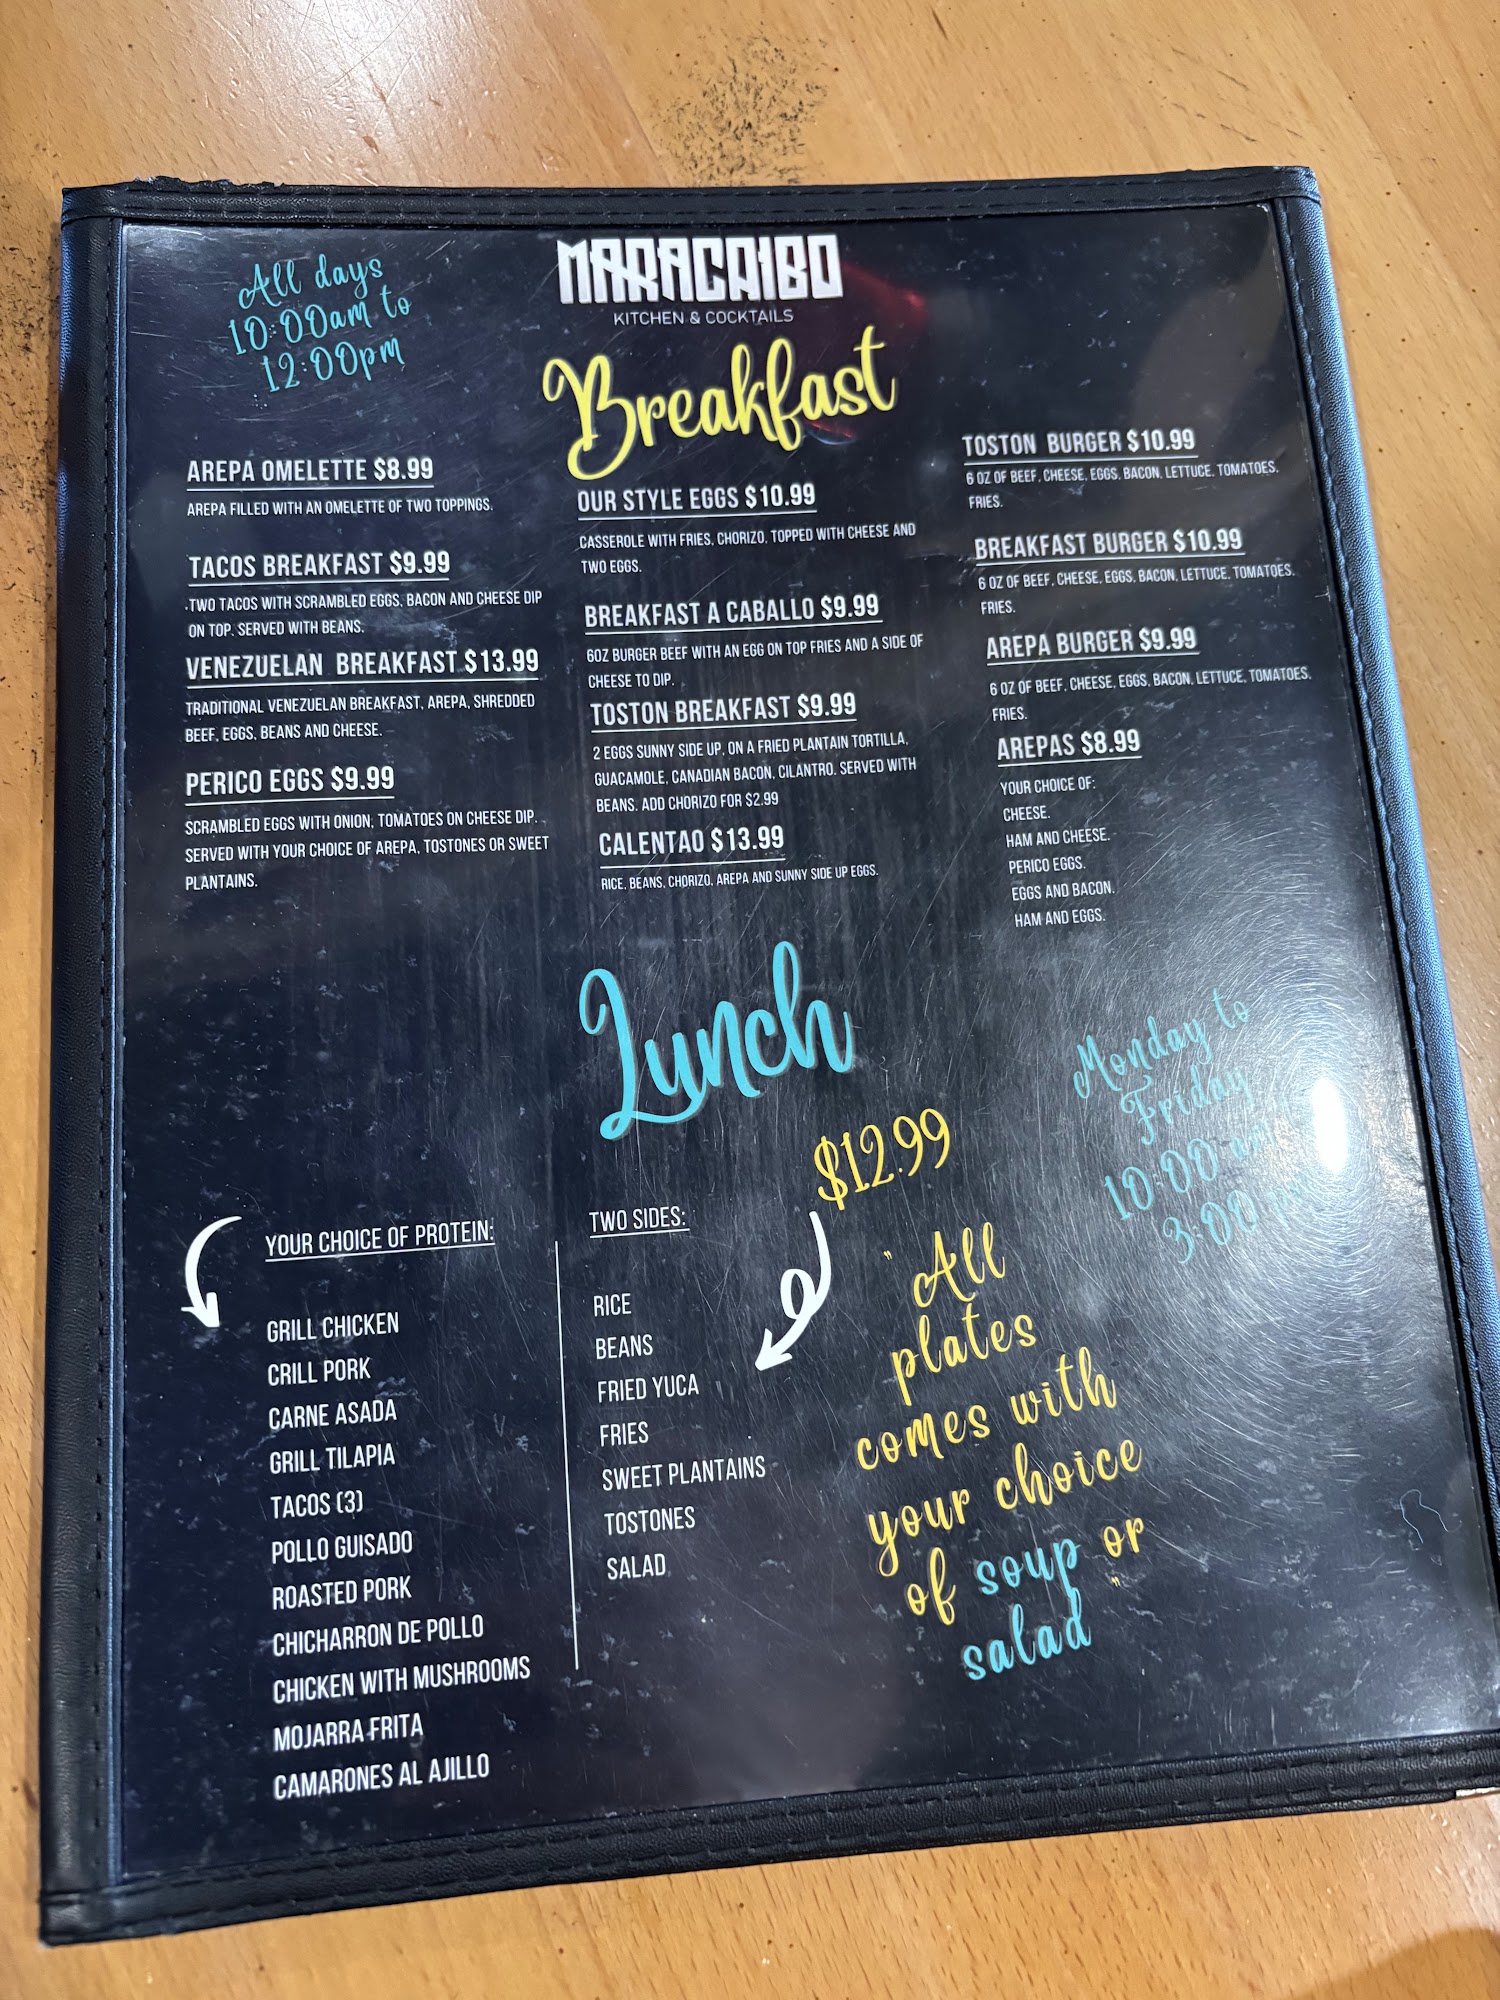 All days
10:00am to
12:00pm
MARACAIBO
KITCHEN & COCKTAILS
Breakfast
AREPA OMELETTE $8.99
AREPA FILLED WITH AN OMELETTE OF TWO TOPPINGS.
TACOS BREAKFAST $9.99
TWO TACOS WITH SCRAMBLED EGGS, BACON AND CHEESE DIP
ON TOP. SERVED WITH BEANS.
VENEZUELAN BREAKFAST $13.99
TRADITIONAL VENEZUELAN BREAKFAST, AREPA, SHREDDED
BEEF, EGGS, BEANS AND CHEESE.
PERICO EGGS $9.99
SCRAMBLED EGGS WITH ONION, TOMATOES ON CHEESE DIP.
SERVED WITH YOUR CHOICE OF AREPA, TOSTONES OR SWEET
PLANTAINS.
OUR STYLE EGGS $10.99
CASSEROLE WITH FRIES, CHORIZO, TOPPED WITH CHEESE AND
TWO EGGS.
BREAKFAST A CABALLO $9.99
6OZ BURGER BEEF WITH AN EGG ON TOP FRIES AND A SIDE OF
CHEESE TO DIP.
TOSTON BREAKFAST $9.99
2 EGGS SUNNY SIDE UP, ON A FRIED PLANTAIN TORTILLA,
GUACAMOLE, CANADIAN BACON, CILANTRO. SERVED WITH
BEANS. ADD CHORIZO FOR $2.99
CALENTAO $13.99
RICE, BEANS, CHORIZO, AREPA AND SUNNY SIDE UP EGGS.
TOSTON BURGER $10.99
6 OZ OF BEEF, CHEESE, EGGS, BACON, LETTUCE, TOMATOES,
FRIES.
BREAKFAST BURGER $10.99
6 OZ OF BEEF, CHEESE, EGGS, BACON, LETTUCE, TOMATOES,
FRIES.
AREPA BURGER $9.99
6 OZ OF BEEF, CHEESE, EGGS, BACON, LETTUCE, TOMATOES,
FRIES.
AREPAS $8.99
YOUR CHOICE OF:
CHEESE.
HAM AND CHEESE.
PERICO EGGS.
EGGS AND BACON.
HAM AND EGGS.
Lunch
$12.99
Monday to
Friday
10:00 am
3:00
YOUR CHOICE OF PROTEIN:
GRILL CHICKEN
CRILL PORK
CARNE ASADA
GRILL TILAPIA
TACOS (3)
POLLO GUISADO
ROASTED PORK
CHICHARRON DE POLLO
CHICKEN WITH MUSHROOMS
MOJARRA FRITA
CAMARONES AL AJILLO
TWO SIDES:
RICE
BEANS
FRIED YUCA
FRIES
SWEET PLANTAINS
TOSTONES
SALAD
"All
plates
comes with
your choice
of soup or
salad"